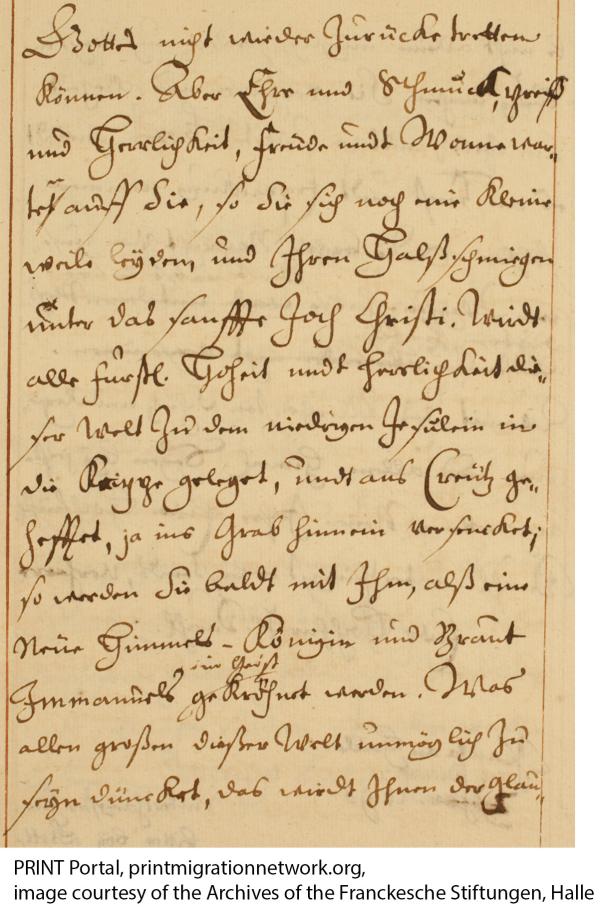 Gottes nicht wieder Zurücke tretten
können. Aber Ehre und Schmuck, preiß
und Herrlichkeit, freüde undt Wonne war-
tet auff Sie, so Sie sich noch eine kleine
weile leyden, und Ihren Halß schmiegen
unter das sanffte Joch Christi. Wirdt
alle fürstl. Hoheit undt herrlichkeit die-
ser Welt Zu dem niedrigen Jesulein in
die Krippe geleget, undt ans Creütz ge-
hefftet, ja ins Grab hinnein versencket;
so werden Sie baldt mit Ihm, alß eine
Neüe Himmels-Königin und Braut
im Geist
Immanuels gekröhnet werden. Was
allen großen dießer Welt unmöglich Zu
seyn düncket, das wirdt Ihnen der glau-
PRINT Portal, printmigrationnetwork.org,
image courtesy of the Archives of the Franckesche Stiftungen, Halle